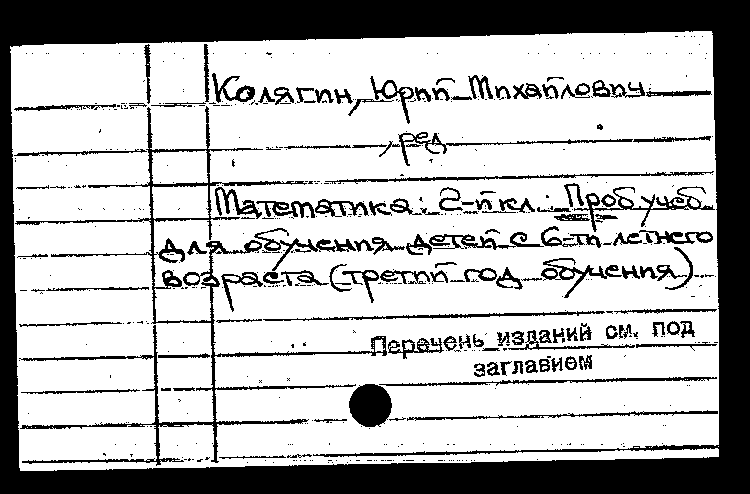 Колягин, Юрий Михайлович,
ред
Математика: 2-й кл.: Проб учеб.
для обучения детей с 6-ти летнего
возраста (третий год обучения)
Перечень изданий см. под
заглавием